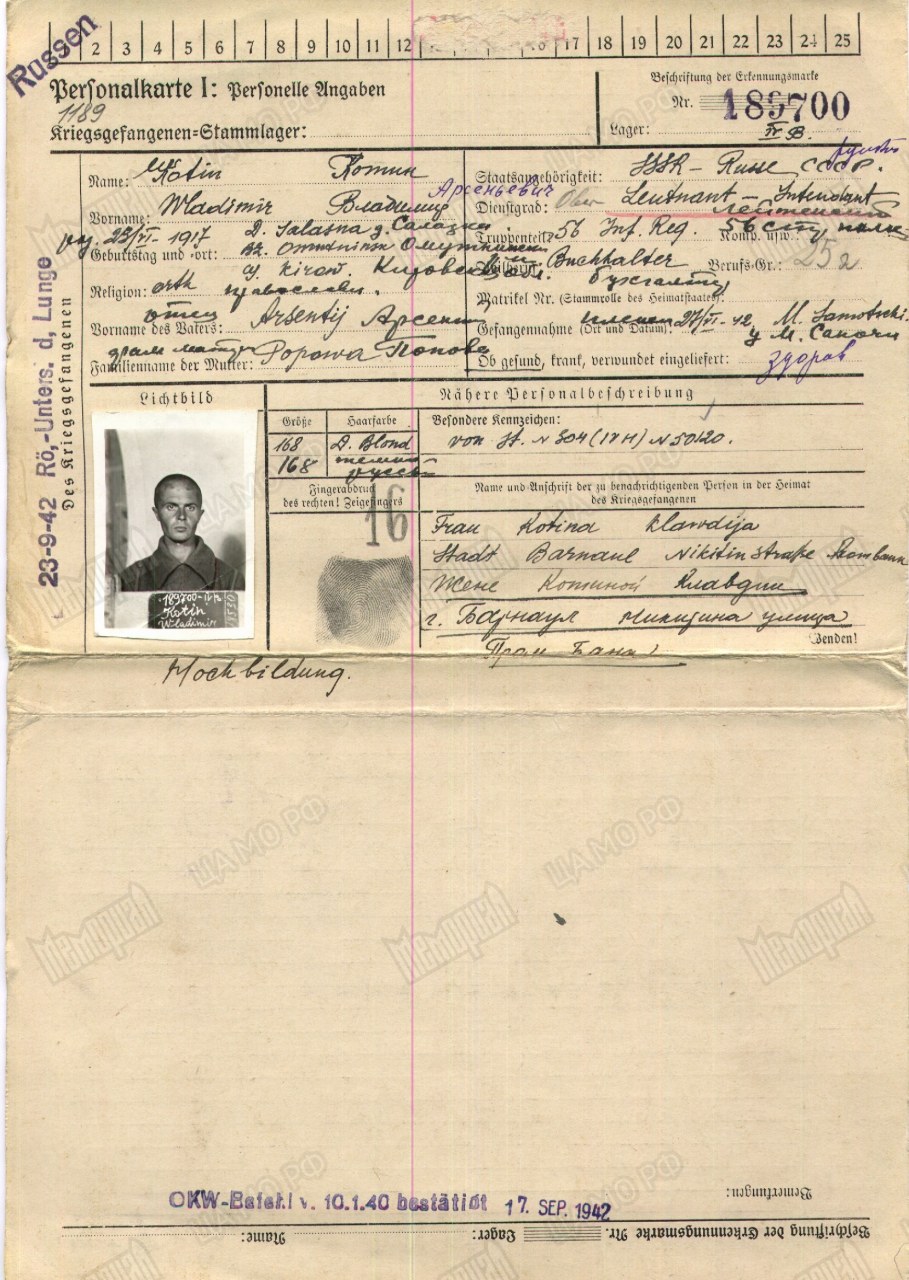 Russen
2 3 4 5 6 7 8 9 10 11 12 16 17 18 19 20 21 22 23 24 25
Personalkarte I: Personelle Angaben
1189
Kriegsgefangenen=Stammlager:
Beschriftung der Erkennungsmarke
Nr. 189700
Lager: IV B.
Des Kriegsgefangenen
23-9-42 Rö,-Unters. d, Lunge
Name: Kotin Котин
Арсеньевич
Vorname: Wladimir Владимир
23/VI-1917 D. Salasna д.
Geburtstag und =ort:
g. Kirow.
Religion: orth православн.
отец
Vorname des Vaters: Arsentij Арсентий
Familienname der Mutter: Popowa Попова
Staatsangehörigkeit: SSSR - Russe СССР.
Dienstgrad: Ober Leutnant - Intendant
Лейтенант
Truppenteil: 56 Inf. Reg. Komp. usw.:
Buchhalter Berufs=Gr.: 25a
Matrikel Nr. (Stammrolle des Heimatstaates):
Gefangennahme (Ort und Datum): 27/VI-42, M.
Ob gesund, krank, verwundet eingeliefert:
здоров
Lichtbild
189700-IVB
Kotin
Wladimir
Nähere Personalbeschreibung
Größe
Haarfarbe
Besondere Kennzeichen:
168
D. Blond
von St. N 304 (IV H) N 50120.
168
Fingerabdruck
des rechten! Zeigefingers
16
Name und Anschrift der zu benachrichtigenden Person in der Heimat
des Kriegsgefangenen
Frau Kotina Klawdija
Stadt Barnaul Nikitin straße
Жене Котиной Клавдии
г. Барнаул Никитина улица
Wenden!
Hochbildung.
Мемориал
ЦАМО РФ
OKW-Befehl v. 10.1.40 bestätigt 17. SEP. 1942
Bemerkungen:
Beschriftung der Erkennungsmarke Nr. Lager: Name: